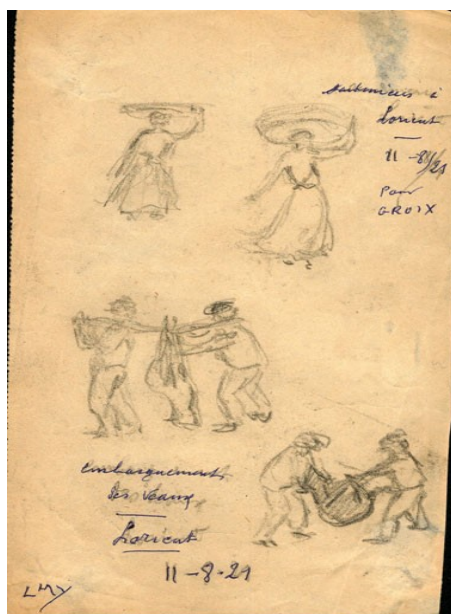 à
Lorient
11-8/21
Pour
GROIX
embarquement
des veaux
Lorient
11-8-21
LMY